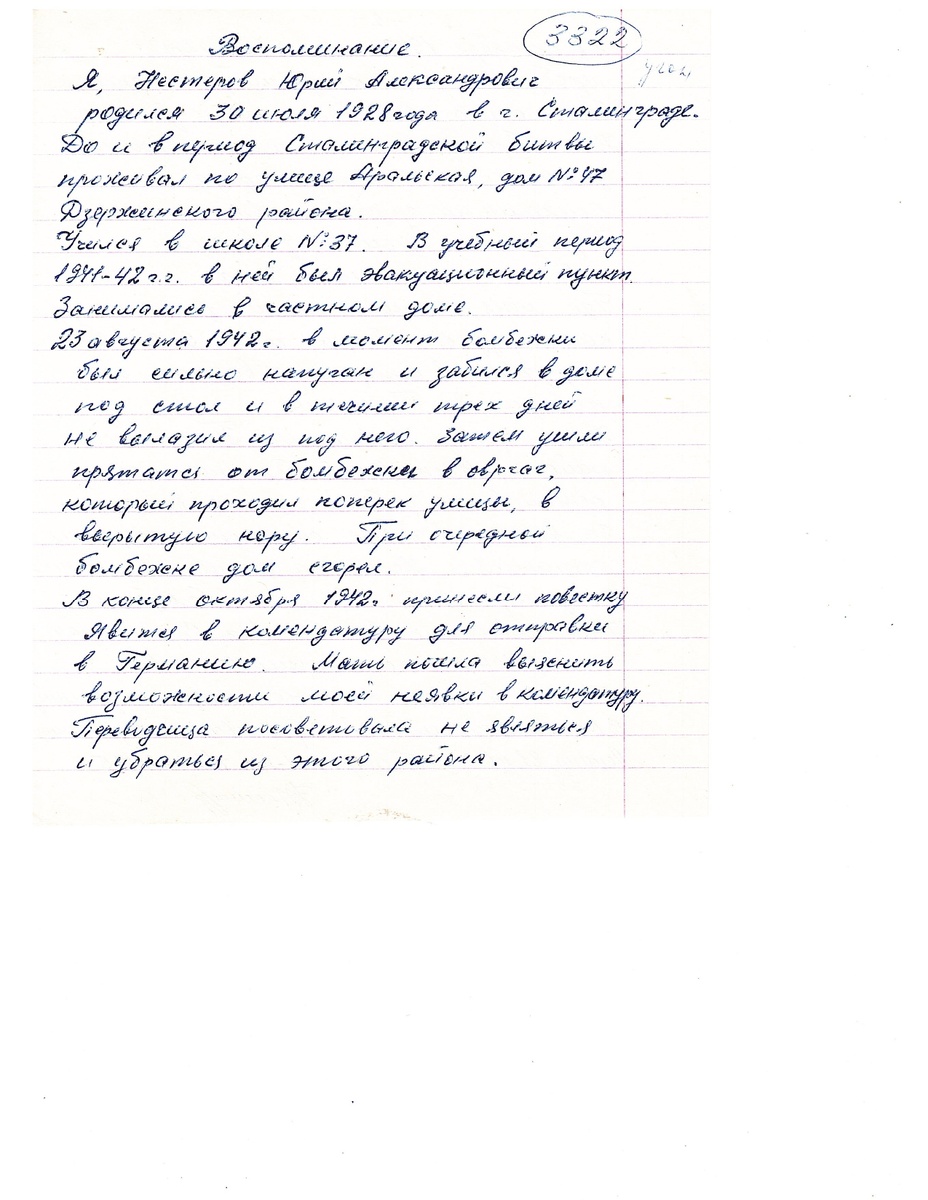 3322
Воспоминание.
Я, Нестеров Юрий Александрович
родился 30 июля 1928 года в г. Сталинграде.
До и в период Сталинградской битвы
проживал по улице Аральская, дом №47
Дзержинского района.
Учился в школе №37. В учебный период
1941-42 г.г. в ней был эвакуационный пункт.
Занимались в частном доме.
23 августа 1942г. в момент бомбежки
был сильно напуган и забился в доме
под стол и в течении трех дней
не вылазил из под него. Затем ушли
прятатся от бомбежки в овраг,
который проходил поперек улицы, в
вырытую нору. При очередной
бомбежке дом сгорел.
В конце октября 1942г. принесли повестку
явится в комендатуру для отправки
в Германию. Мать пошла выяснить
возможности моей неявки в комендатуру.
Переводчица посоветовала не являться
и убраться из этого района.